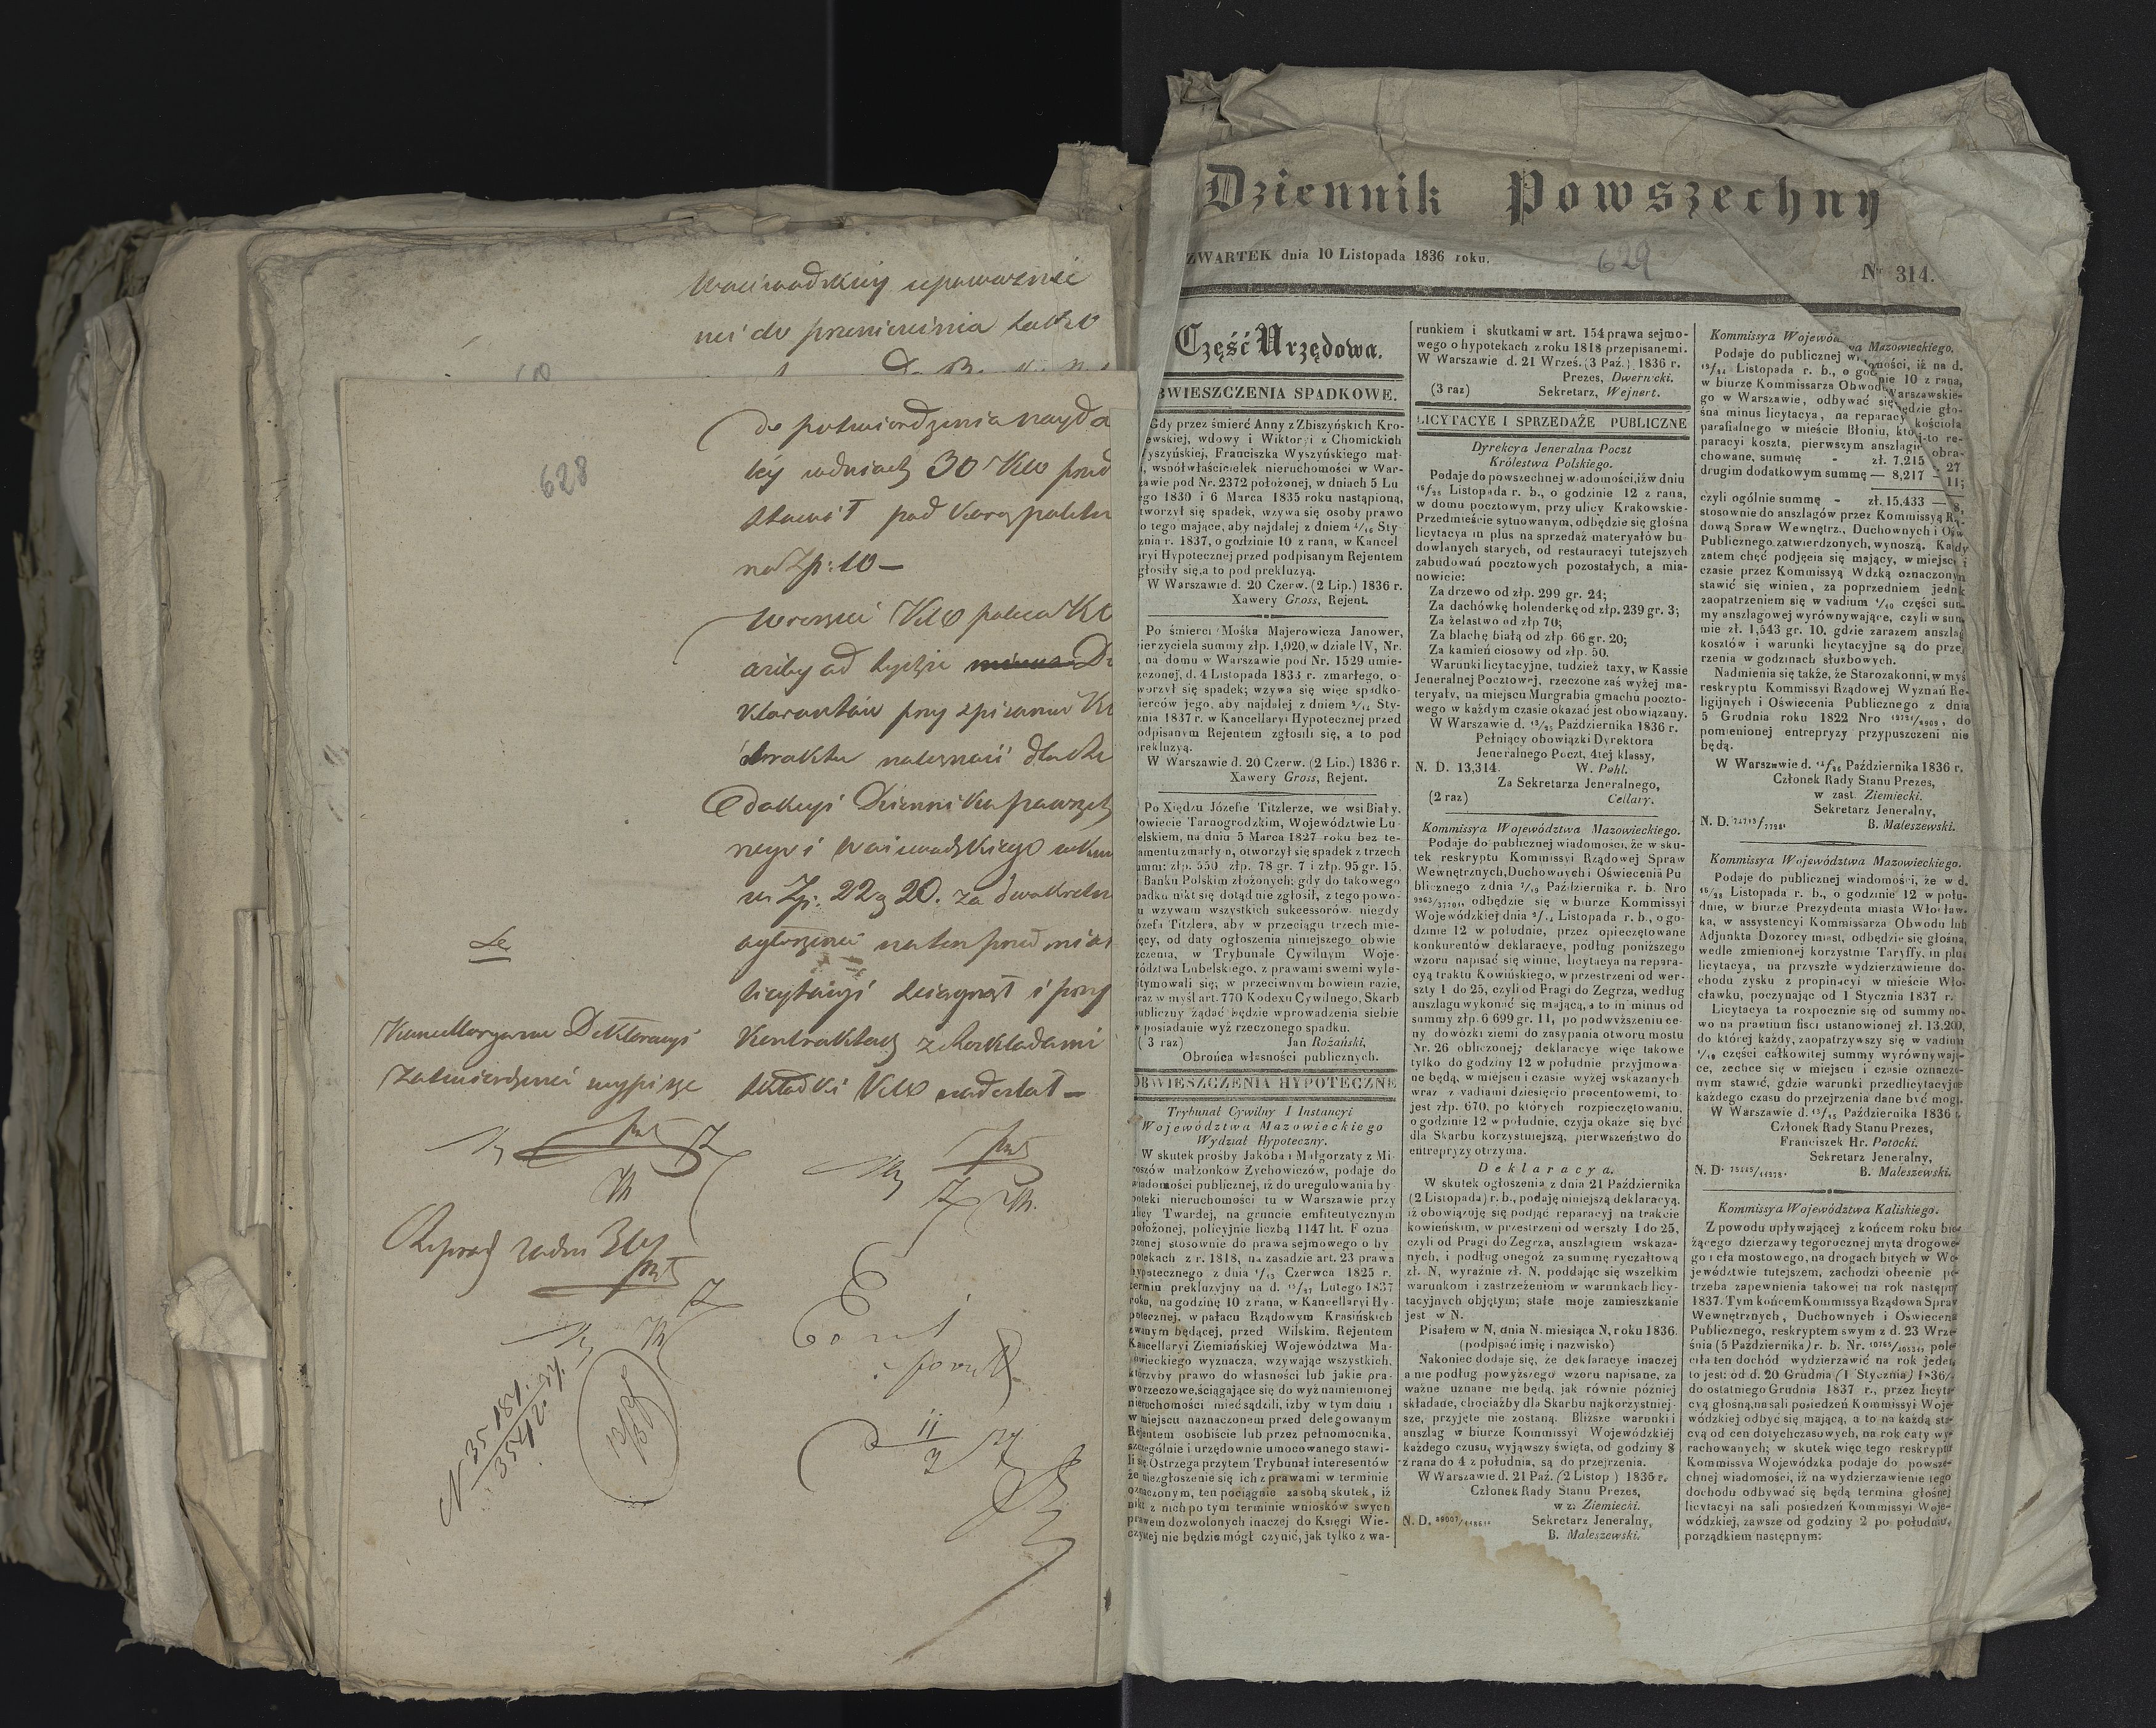 628
do potwierdzenia nayda
ley w dniach 30 Kto
stawił pod karą
na Zp: 10 —
polica
od tychże
przy spisaniu
należności dla
dakcyi Dziennika powszech
nego i woiewodzkiego
Zp. 22 g 20. za dwukrotne
ogłoszenie na ten przedmiot
licytacyi ściągnął i przy
Kontraktach z Rozkładami
składki nadesłał —
Kancellaryine Deklaracyi
zatwierdzenei wypisze
N 35181
Dziennik Powszechny
ZWARTEK dnia 10 Listopada 1836 roku.
629
Nr 314.
Część Urzędowa.
BWIESZCZENIA SPADKOWE.
Gdy przez śmierć Anny z Zbiszyńskich Kro-
ewskiej, wdowy i Wiktoryi z Chomickich
yszyńskiej, Franciszka Wyszyńskiego mał-
, współwłaścicielek nieruchomości w War-
zawie pod Nr. 2372 położonej, w dniach 5 Lu
ego 1830 i 6 Marca 1835 roku nastąpioną,
tworzył się spadek, wzywa się osoby prawo
o tego mające, aby najdalej z dniem 4/16 Sty-
znia r. 1837, o godzinie 10 z rana, w Kancel
aryi Hypotecznej przed podpisanym Rejentem
głosiły się, a to pod prekluzyą.
W Warszawie d. 20 Czerw. (2 Lip.) 1836 r.
Xawery Gross, Rejent.
Po śmierci Mośka Majerowicza Janower,
ierzyciela summy złp. 1,020, w dziale IV, Nr.
, na domu w Warszawie pod Nr. 1529 umie-
zczonej, d. 4 Listopada 1833 r. zmarłego, o-
worzył się spadek; wzywa się więc spadko-
ierców jego, aby najdalej z dniem Sty-
znia 1837 r. w Kancellaryi Hypotecznej przed
odpisanym Rejentem zgłosili się, a to pod
rekluzyą.
W Warszawie d. 20 Czerw. (2 Lip.) 1836 r.
Xawery Gross, Rejent.
Po Xiędzu Józefie Titzlerze, we wsi Biały,
owiecie Tarnogrodzkim, Województwie Lu-
elskiem, na dniu 5 Marca 1827 roku bez te-
amentu zmarłym, otworzył się spadek z trzech
umm: złp. 550 złp. 78 gr. 7 i złp. 95 gr. 15,
Banku Polskim złożonych; gdy do takowego
adku nikt się dotąd nie zgłosił, z tego powo-
u wzywam wszystkich sukcessorów niegdy
ózefa Titzlera, aby w przeciągu trzech mie-
ięcy, od daty ogłoszenia niniejszego obwie
zczenia, w Trybunale Cywilnym Woje-
ództwa Lubelskiego, z prawami swemi wyle-
itymowali się; w przeciwnym bowiem razie,
raz w myśl art. 770 Kodexu Cywilnego, Skarb
ubliczny żądać będzie wprowadzenia siebie
posiadanie wyż rzeczonego spadku.
( 3 raz) Jan Rożański,
Obrońca własności publicznych.
OBWIESZCZENIA HYPOTECZNE
Trybunał Cywilny I Instancyi
Województwa Mazowieckiego
Wydział Hypoteczny.
W skutek prośby Jakóba i Małgorzaty z Mi-
roszów małżonków Zychowiczów, podaje do
wiadomości publicznej, iż do uregulowania hy-
poteki nieruchomości tu w Warszawie przy
ulicy Twardej, na gruncie emfiteutycznym
położonej, policyjnie liczbą 1147 lit. F ozna
czonej stosownie do prawa sejmowego o hy
potekach z r. 1818, na zasadzie art. 23 prawa
hypotecznego z dnia 1/13 Czerwca 1825 r.
termin prekluzyjny na d. 15/27 Lutego 1837
roku, na godzinę 10 z rana, w Kancellaryi Hy-
potecznej, w pałacu Rządowym Krasińskich
zwanym będącej, przed Wilskim, Rejentem
Kancellaryi Ziemiańskiej Województwa Ma-
zowieckiego wyznacza, wzywając wszystkich,
którzyby prawo do własności lub jakie pra-
wo rzeczowe, ściągające się do wyż namienionej
nieruchomości mieć sądzili, izby w tym dniu i
w miejscu naznaczonem przed delegowanym
Rejentem osobiście lub przez pełnomocnika,
szczególnie i urzędownie umocowanego stawi-
li się. Ostrzega przytem Trybunał interesentów
że niezgłoszenie się ich z prawami w terminie
oznaczonym, ten pociągnie za sobą skutek, iż
nikt z nich po tym terminie wniosków swych
prawem dozwolonych inaczej do Księgi Wie-
czystej nie będzie mógł czynić, jak tylko z wa-
runkiem i skutkami w art. 154 prawa sejmo-
wego o hypotekach z roku 1818 przepisanemi.
W Warszawie d. 21 Wrześ. (3 Paź.) 1836 r.
Prezes, Dwernicki.
(3 raz) Sekretarz, Wejnert.
LICYTACYE I SPRZEDAŻE PUBLICZNE
Dyrekcya Jeneralna Poczt
Królestwa Polskiego.
Podaje do powszechnej wiadomości, iż w dniu
16/28 Listopada r. b., o godzinie 12 z rana,
w domu pocztowym, przy ulicy Krakowskie-
Przedmieście sytuowanym, odbędzie się głośna
licytacya in plus na sprzedaż materyałów bu-
dowlanych starych, od restauracyi tutejszych
zabudowań pocztowych pozostałych, a mia-
nowicie:
Za drzewo od złp. 299 gr. 24;
Za dachówkę holenderkę od złp. 239 gr. 3;
Za żelastwo od złp 70;
Za blachę białą od złp. 66 gr. 20;
Za kamień ciosowy od złp. 50.
Warunki licytacyjne, tudzież taxy, w Kassie
Jeneralnej Pocztowej, rzeczone zaś wyżej ma-
teryały, na miejscu Murgrabia gmachu poczto-
wego w każdym czasie okazać jest obowiązany.
W Warszawie d. 13/25 Października 1836 r.
Pełniący obowiązki Dyrektora
Jeneralnego Poczt, 4tej klassy,
N. D. 13,314. W. Pohl.
Za Sekretarza Jeneralnego,
(2 raz) Cellary.
Kommissya Województwa Mazowieckiego.
Podaje do publicznej wiadomości, że w sku-
tek reskryptu Kommissyi Rządowej Spraw
Wewnętrznych, Duchownych i Oświecenia Pu
blicznego z dnia 7/19 Października r. b. Nro
odbędzie się w biurze Kommissyi
Wojewódzkiej dnia Listopada r. b., o go-
dzinie 12 w południe, przez opieczętowane
konkurentów deklaracye, podług poniższego
wzoru napisać się winne, licytacya na repara-
cyą traktu Kowińskiego, w przestrzeni od wer-
szty 1 do 25, czyli od Pragi do Zegrza, według
anszlagu wykonać się mającą, a to in minus od
summy złp. 6 699 gr. 11, po podwyższeniu ce-
ny dowózki ziemi do zasypania otworu mostu
Nr. 26 obliczonej; deklaracye więc takowe
tylko do godziny 12 w południe przyjmowa-
ne będą, w miejscu i czasie wyżej wskazanych
wraz z vadiami dziesięcio procentowemi, to
jest złp. 670, po których rozpieczętowaniu,
o godzinie 12 w południe, czyja okaże się być
dla Skarbu korzystniejszą, pierwszeństwo do
entrepryzy otrzyma.
Deklaracya.
W skutek ogłoszenia z dnia 21 Października
(2 Listopada) r. b., podaję niniejszą deklaracyą,
iż obowiązuję się podjąć reparacyj na trakcie
kowieńskim, w przestrzeni od werszty 1 do 25,
czyli od Pragi do Zegrza, anszlagiem wskaza-
nych, i podług onegoż za summę ryczałtową
zł. N, wyraźnie zł. N, poddając się wszelkim
warunkom i zastrzeżeniom w warunkach licy-
tacyjnych objętym; stałe moje zamieszkanie
jest w N.
Pisałem w N, dnia N. miesiąca N, roku 1836.
(podpisać imię i nazwisko)
Nakoniec dodaje się, że deklaracye inaczej
a nie podług powyższego wzoru napisane, za
ważne uznane nie będą, jak równie później
składane, chociażby dla Skarbu najkorzystniej-
sze, przyjęte nie zostaną. Bliższe warunki i
anszlag w biurze Kommissyi Wojewódzkiej
każdego czasu, wyjąwszy święta, od godziny 8
z rana do 4 z południa, są do przejrzenia.
W Warszawie d. 21 Paź. (2 Listop ) 1836 r.
Członek Rady Stanu Prezes,
w z. Ziemiecki.
N. D. Sekretarz Jeneralny,
B. Maleszewski.
Kommissya Wojewó wa Mazowieckiego.
Podaje do publicznej wi omości, iż na d.
Listopada r. b., o god nie 10 z rana,
w biurze Kommissarza Obwodu Warszawskie-
go w Warszawie, odbywać się będzie gło-
śna minus licytacya, na reparacy kościoła
parafialnego w mieście Błoniu, któ j-to re-
paracyi koszta, pierwszym anszlagi obra-
chowane, summę - zł. 7,215 - 27
drugim dodatkowym summę — 8,217 — 11;
czyli ogólnie summę - zł. 15,433 — 8,
stosownie do anszlagów przez Kommissyą Rzą-
dową Spraw Wewnętrz., Duchownych i Ośw
Publicznego zatwierdzonych, wynoszą. Każdy
zatem chęć podjęcia się mający, w miejscu i
czasie przez Kommissyą Wdzką oznaczonym
stawić się winien, za poprzedniem jednak
zaopatrzeniem się w vadium 1/10 części sum-
my anszlagowej wyrównywające, czyli w sum
mie zł. 1,543 gr. 10. gdzie zarazem anszlag
kosztów i warunki licytacyjne są do przej
rzenia w godzinach służbowych.
Nadmienia się także, że Starozakonni, w myśl
reskryptu Kommissyi Rządowej Wyznań Re-
ligijnych i Oświecenia Publicznego z dnia
5 Grudnia roku 1822 Nro do
pomienionej entrepryzy przypuszczeni nie
będą.
W Warszawie d. Października 1836 r.
Członek Rady Stanu Prezes,
w zast. Ziemiecki.
Sekretarz Jeneralny,
N. D. B. Maleszewski.
Kommissya Województwa Mazowieckiego.
Podaje do publicznej wiadomości, że w d.
16/28 Listopada r. b., o godzinie 12 w połu-
dnie, w biurze Prezydenta miasta Włocław-
ka, w assystencyi Kommissarza Obwodu lub
Adjunkta Dozorcy miast, odbędzie się głośna,
wedle zmienionej korzystnie Taryffy, in plus
licytacya, na przyszłe wydzierzawienie do-
chodu zysku z propinacyi w mieście Wło-
cławku, poczynając od 1 Stycznia 1837 r.
Licytacya ta rozpocznie się od summy no-
wo na praetium fisci ustanowionej zł. 13,200,
do której każdy, zaopatrzywszy się w vadium
1/10 części całkowitej summy wyrównywają-
ce, zechce się w miejscu i czasie oznaczo-
nym stawić, gdzie warunki przedlicytacyjne
każdego czasu do przejrzenia dane być mogą.
W Warszawie d. 13/25 Października 1836 r.
Członek Rady Stanu Prezes,
Franciszek Hr. Potocki.
Sekretarz Jeneralny,
N. D. B. Maleszewski.
Kommissya Województwa Kaliskiego.
Z powodu upływającej z końcem roku bie-
żącego dzierzawy tegorocznej myta drogowe-
go i cła mostowego, na drogach bitych w Wo-
jewództwie tutejszem, zachodzi obecnie po-
trzeba zapewnienia takowej na rok następny
1837. Tym końcem Kommissya Rządowa Spraw
Wewnętrznych, Duchownych i Oświecenia
Publicznego, reskryptem swym z d. 23 Wrze-
śnia (5 Października) r. b. Nr. pole-
ciła ten dochód wydzierzawić na rok jeden,
to jest: od d. 20 Grudnia (1 Stycznia) 1836/
do ostatniego Grudnia 1837 r., przez licyta-
cyą głośną, na sali posiedzeń Kommissyi Woje-
wódzkiej odbyć się mającą, a to na każdą sta-
cyą od cen dotychczasowych, na rok cały wy-
rachowanych; w skutek więc tego reskryptu
Kommissya Wojewódzka podaje do powsze-
chnej wiadomości, iż na wydzierzawienie tego
dochodu odbywać się będą termina głośnej
licytacyi na sali posiedzeń Kommissyi Woje-
wódzkiej, zawsze od godziny 2 po południu,
porządkiem następnym: